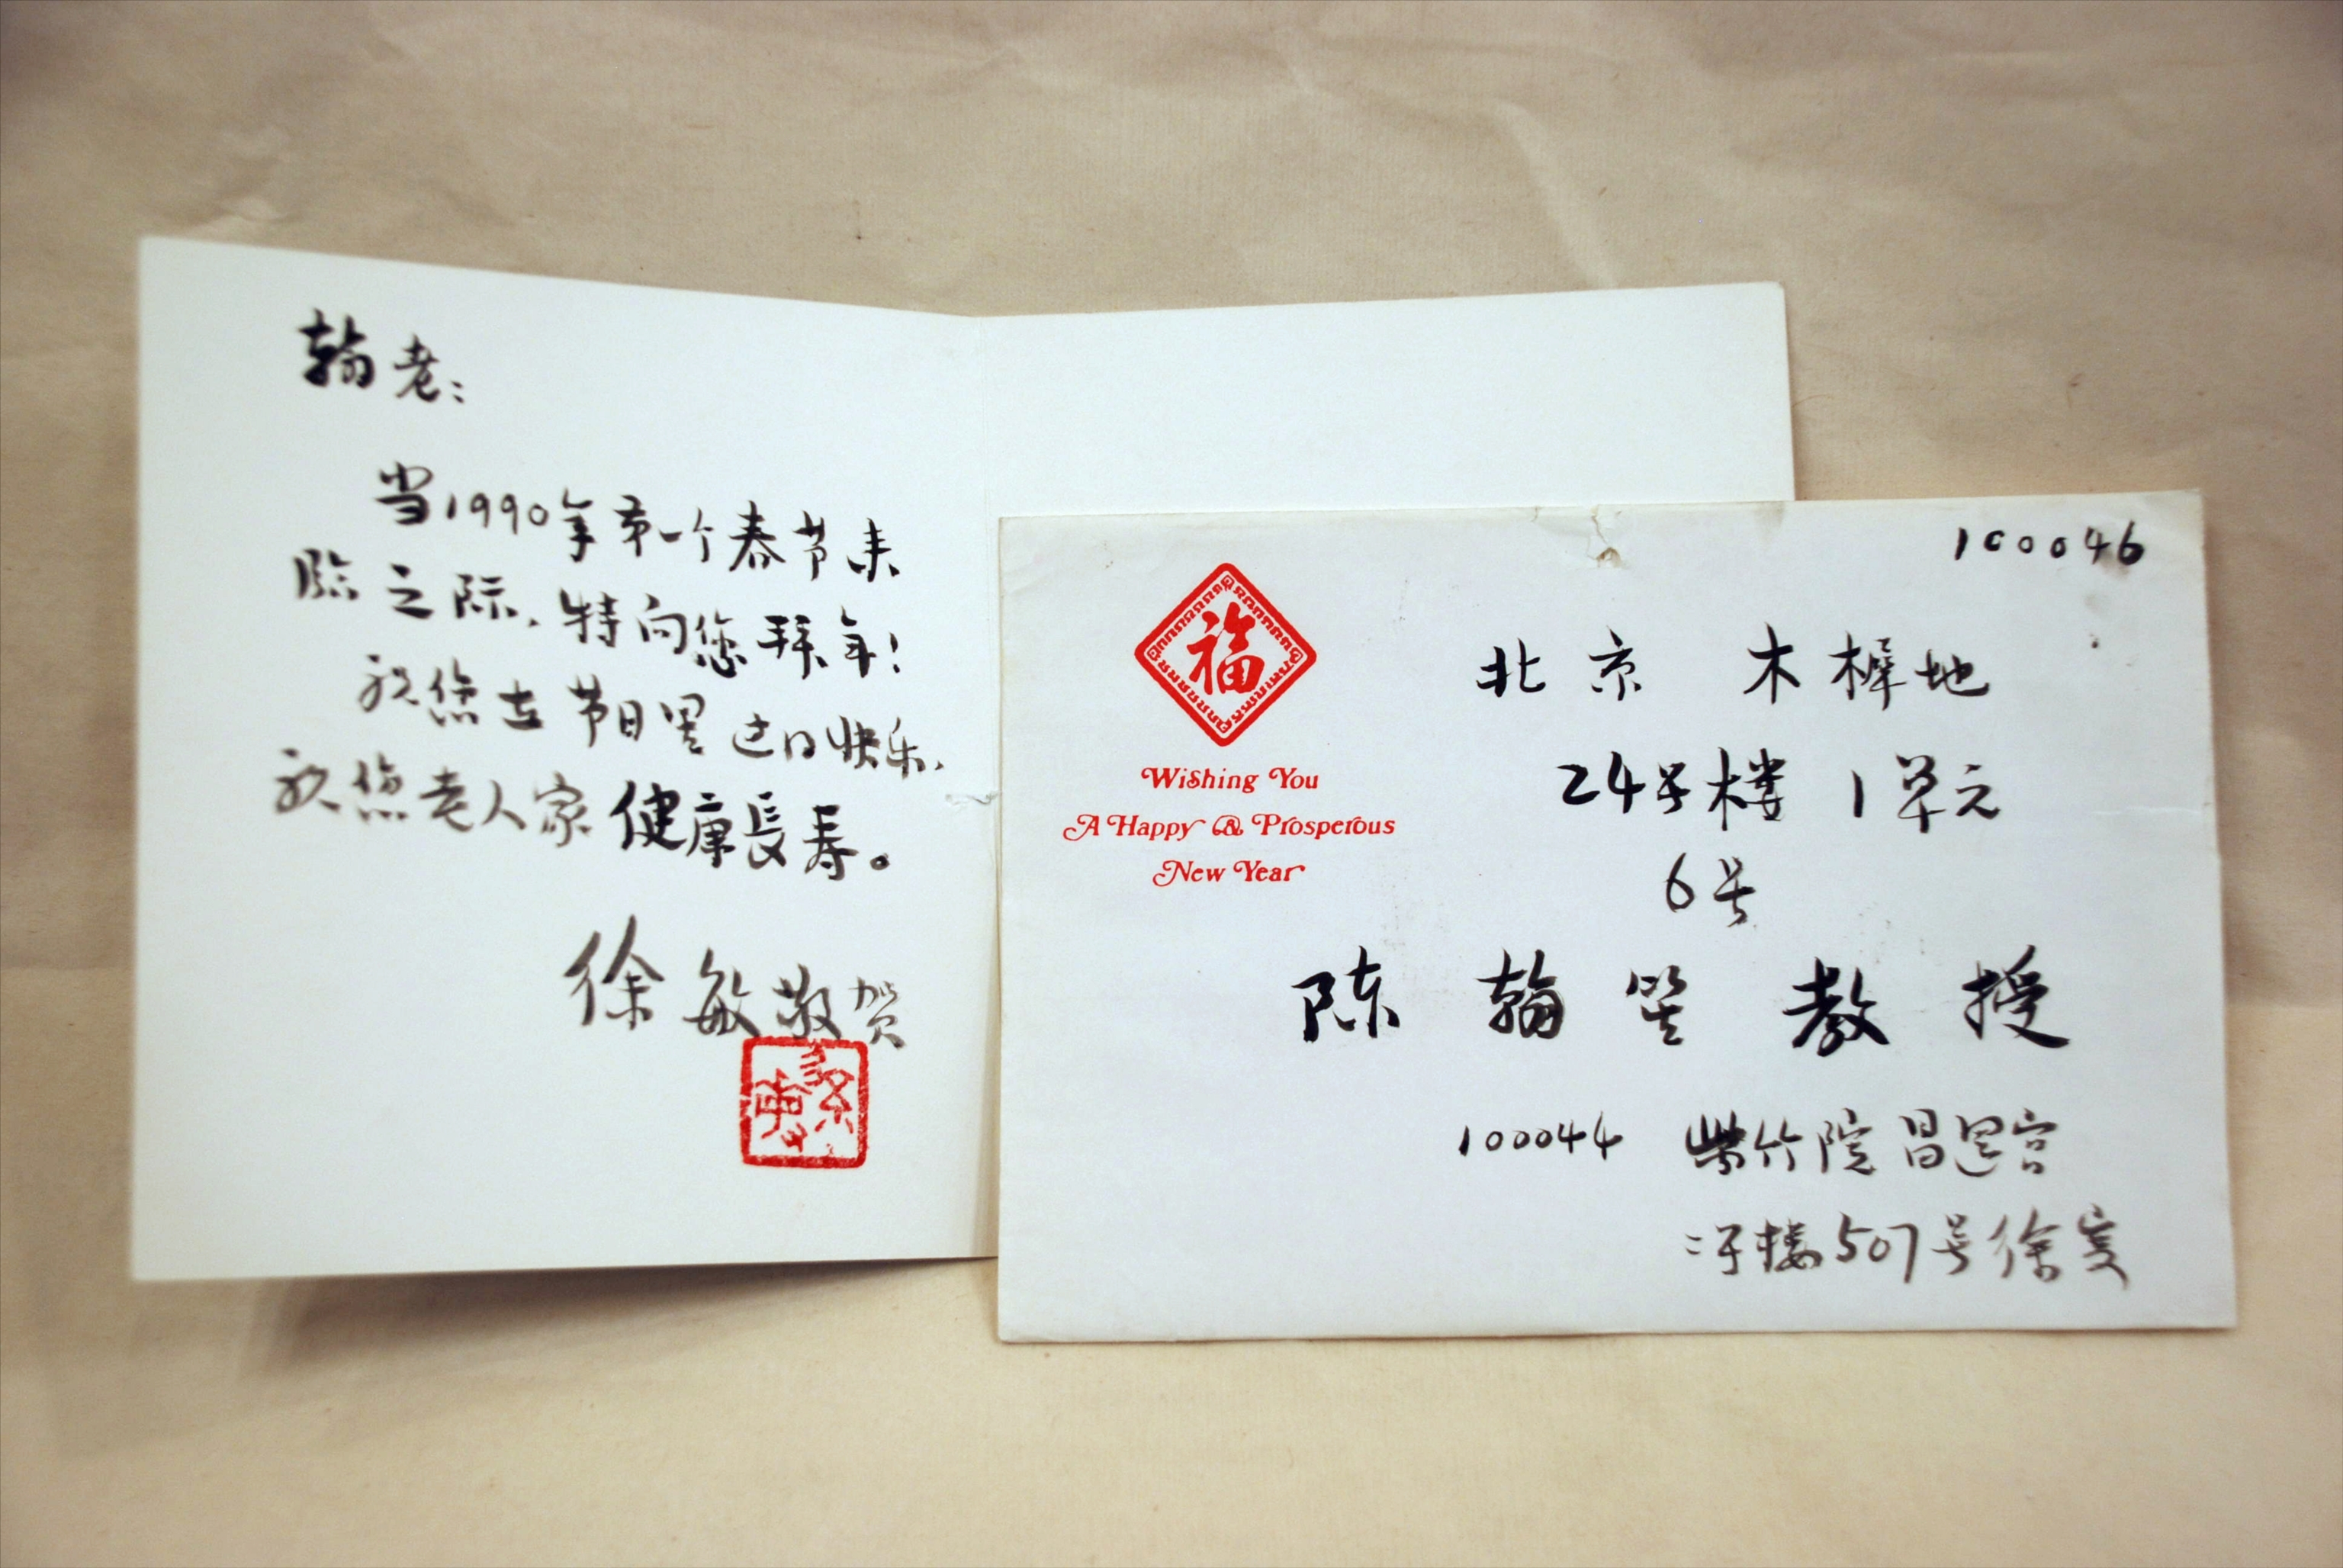 翰老：
当1990年第一个春节来
临之际，特向您拜年！
祝您在节日里过的快乐，
祝您老人家健康長寿。
徐敏敬贺
100046
福
Wishing You
A Happy & Prosperous
New Year
北京 木樨地
24号楼 1单元
6号
陈翰笙教授
100044 紫竹院昌运宫
楼507号徐